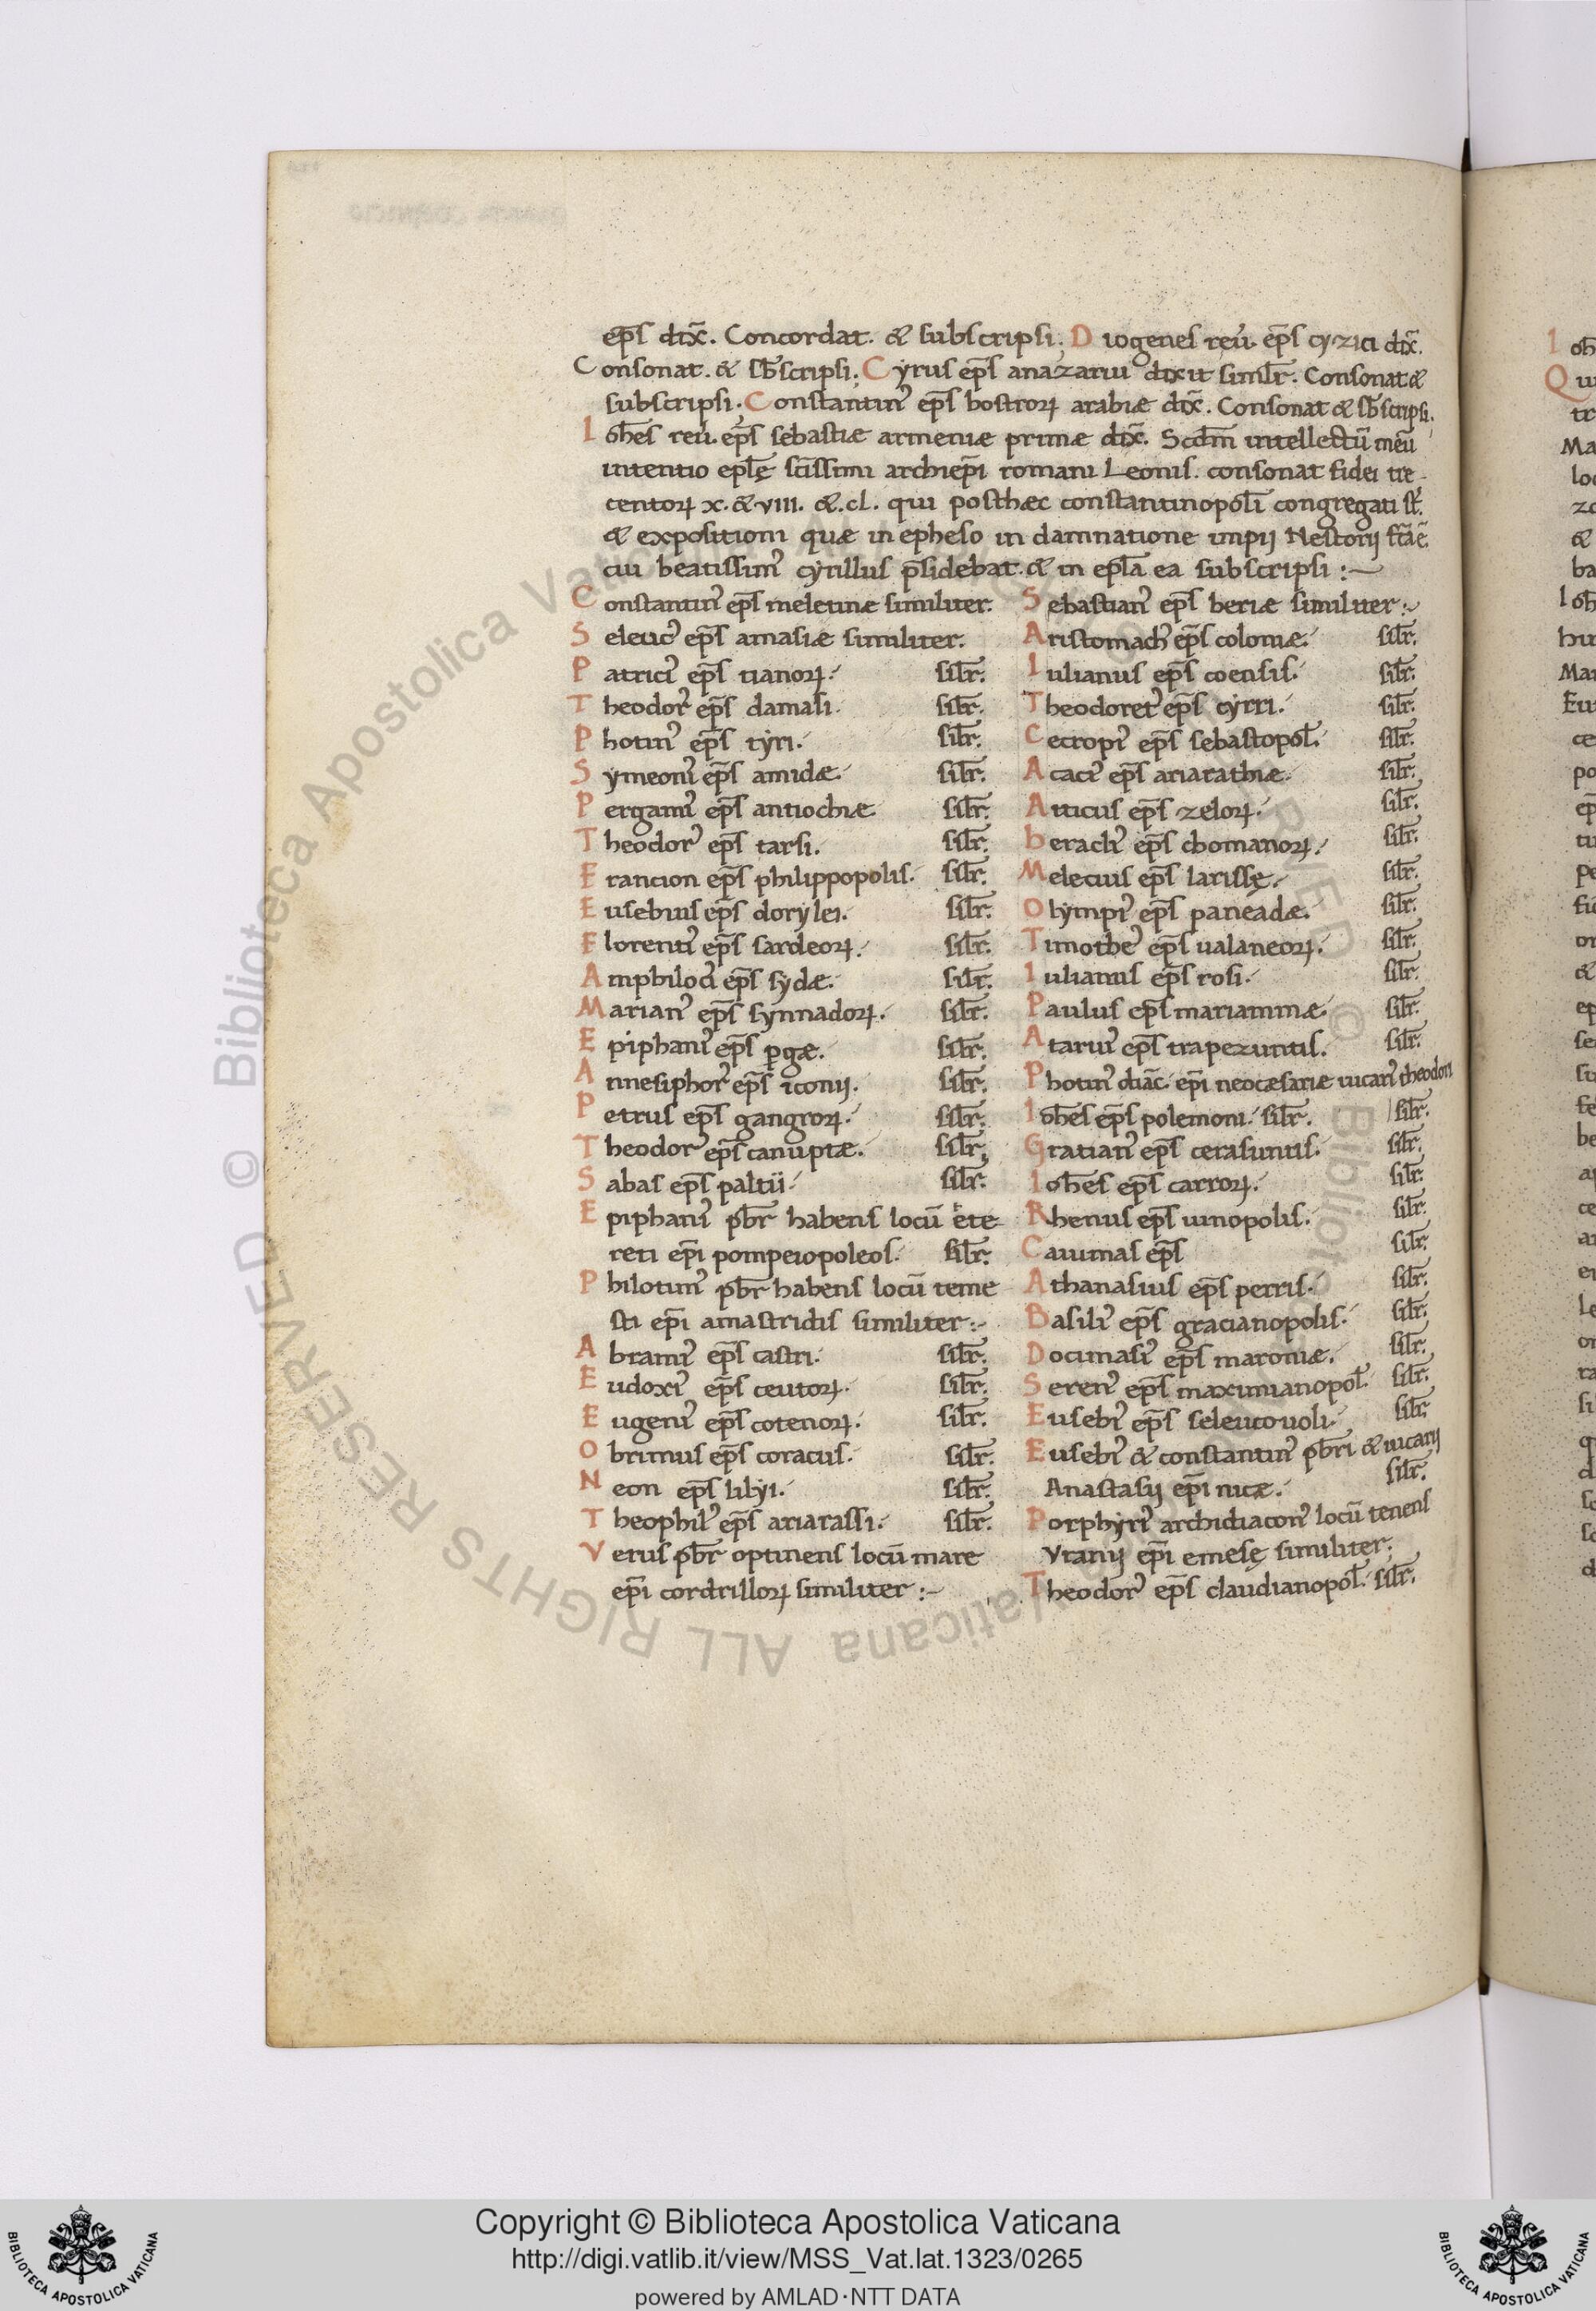 ep̄s dix̄. Concordat. & subscripsi; Diogenes reu̇. ep̄s cyzici dix̄.
Consonat. & sb̄scripsi; Cyrus ep̄s anazariu dixit simil̄r. Consonat &
subscripsi. Constantin᾽ ep̄s bostroꝝ arabiæ dix̄. Consonat & sb̄scripsi.
Ioh̄es reu̇. ep̄s sebastiæ armeniæ primæ dix̄. Scd̄m intellectū meū
intentio epl̄ę sc̄issimi archiep̄i romani Leonis. consonat fidei tre
centoꝝ x. & viii. &. cl. qui posthæc constantinopol̄i congregati st̄.
& expositioni quæ in epheso in damnatione impij Nestorij fc̄a ē.
cui beatissim᾽ cyrillus p̄sidebat. & in epl̄a ea subscripsi :—
Constantin᾽ ep̄s meletinæ similiter.
Seleuc᾽ ep̄s amasiæ similiter.
Patrici᾽ ep̄s tianoꝝ. sil̄r.
Theodor᾽ ep̄s damasi. sil̄r.
Photin᾽ ep̄s tyri. sil̄r.
Symeoni᾽ ep̄s amidæ. sil̄r.
Pergami᾽ ep̄s antiochiæ sil̄r.
Theodor᾽ ep̄s tarsi. sil̄r.
Francion ep̄s philippopolis. sil̄r.
Eusebius ep̄s dorylei. sil̄r.
Florenti᾽ ep̄s sardeoꝝ. sil̄r.
Amphiloci᾽ ep̄s sydæ. sil̄r.
Marian᾽ ep̄s synnadoꝝ. sil̄r.
Epiphani᾽ ep̄s ꝑgæ. sil̄r.
Annesiphor᾽ ep̄s iconij. sil̄r.
Petrus ep̄s gangroꝝ. sil̄r.
Theodor᾽ ep̄s canuptæ. sil̄r.
Sabas ep̄s paltii. sil̄r.
Epiphani᾽ pb̄r habens locū ete
reti ep̄i pompeiopoleos. sil̄r.
Philotim᾽ pb̄r habens locū teme
sti ep̄i amastridis similiter:~
Abrami᾽ ep̄s castri. sil̄r.
Eudoxi᾽ ep̄s ceutoꝝ. sil̄r.
Eugeni᾽ ep̄s cotenoꝝ. sil̄r.
Obrimus ep̄s coracus. sil̄r.
Neon ep̄s silyi. sil̄r.
Theophil᾽ ep̄s ariarassi. sil̄r.
Verus pb̄r optinens locū mare
ep̄i cordrilloꝝ similiter :~
Sebastian᾽ ep̄s beriæ similiter:~
Aristomach᾽ ep̄s coloniæ. sil̄r.
Iulianus ep̄s coensis. sil̄r.
Theodoret᾽ ep̄s cyrri. sil̄r.
Cecropi᾽ ep̄s sebastopol̄. sil̄r.
Acaci᾽ ep̄s ariarathiæ. sil̄r.
Atticus ep̄s zeloꝝ. sil̄r.
heracli᾽ ep̄s chomanoꝝ. sil̄r.
Melecius ep̄s larissę. sil̄r.
Olympi᾽ ep̄s paneadæ. sil̄r.
Timothe᾽ ep̄s ualaneoꝝ. sil̄r.
Iulianus ep̄s rosi. sil̄r.
Paulus ep̄s mariammæ. sil̄r.
Atariu᾽ ep̄s trapezuntis. sil̄r.
Photin᾽ diāc. ep̄i neocæsariæ uicari᾽ theodori
Ioh̄es ep̄s polemoni. sil̄r. sil̄r.
Gratian᾽ ep̄s cerasuntis. sil̄r.
Ioh̄es ep̄s carroꝝ. sil̄r.
Rhenus ep̄s uinopolis. sil̄r.
Caiumas ep̄s sil̄r.
Athanasius ep̄s perris. sil̄r.
Basili᾽ ep̄s gracianopolis. sil̄r.
Docimasi᾽ ep̄s maroniæ. sil̄r.
Seren᾽ ep̄s maximianopol̄. sil̄r.
Eusebi᾽ ep̄s seleucouoli. sil̄r
Eusebi᾽ & constantin᾽ pb̄ri & uicarij
Anastasij ep̄i nicæ. sil̄r.
Porphyri᾽ archidiacon᾽ locū tenens
Vranij ep̄i emesę similiter;
Theodor᾽ ep̄s claudianopol̄. sil̄r.
Copyright © Biblioteca Apostolica Vaticana
http://digi.vatlib.it/view/MSS_Vat.lat.1323/0265
powered by AMLAD·NTT DATA